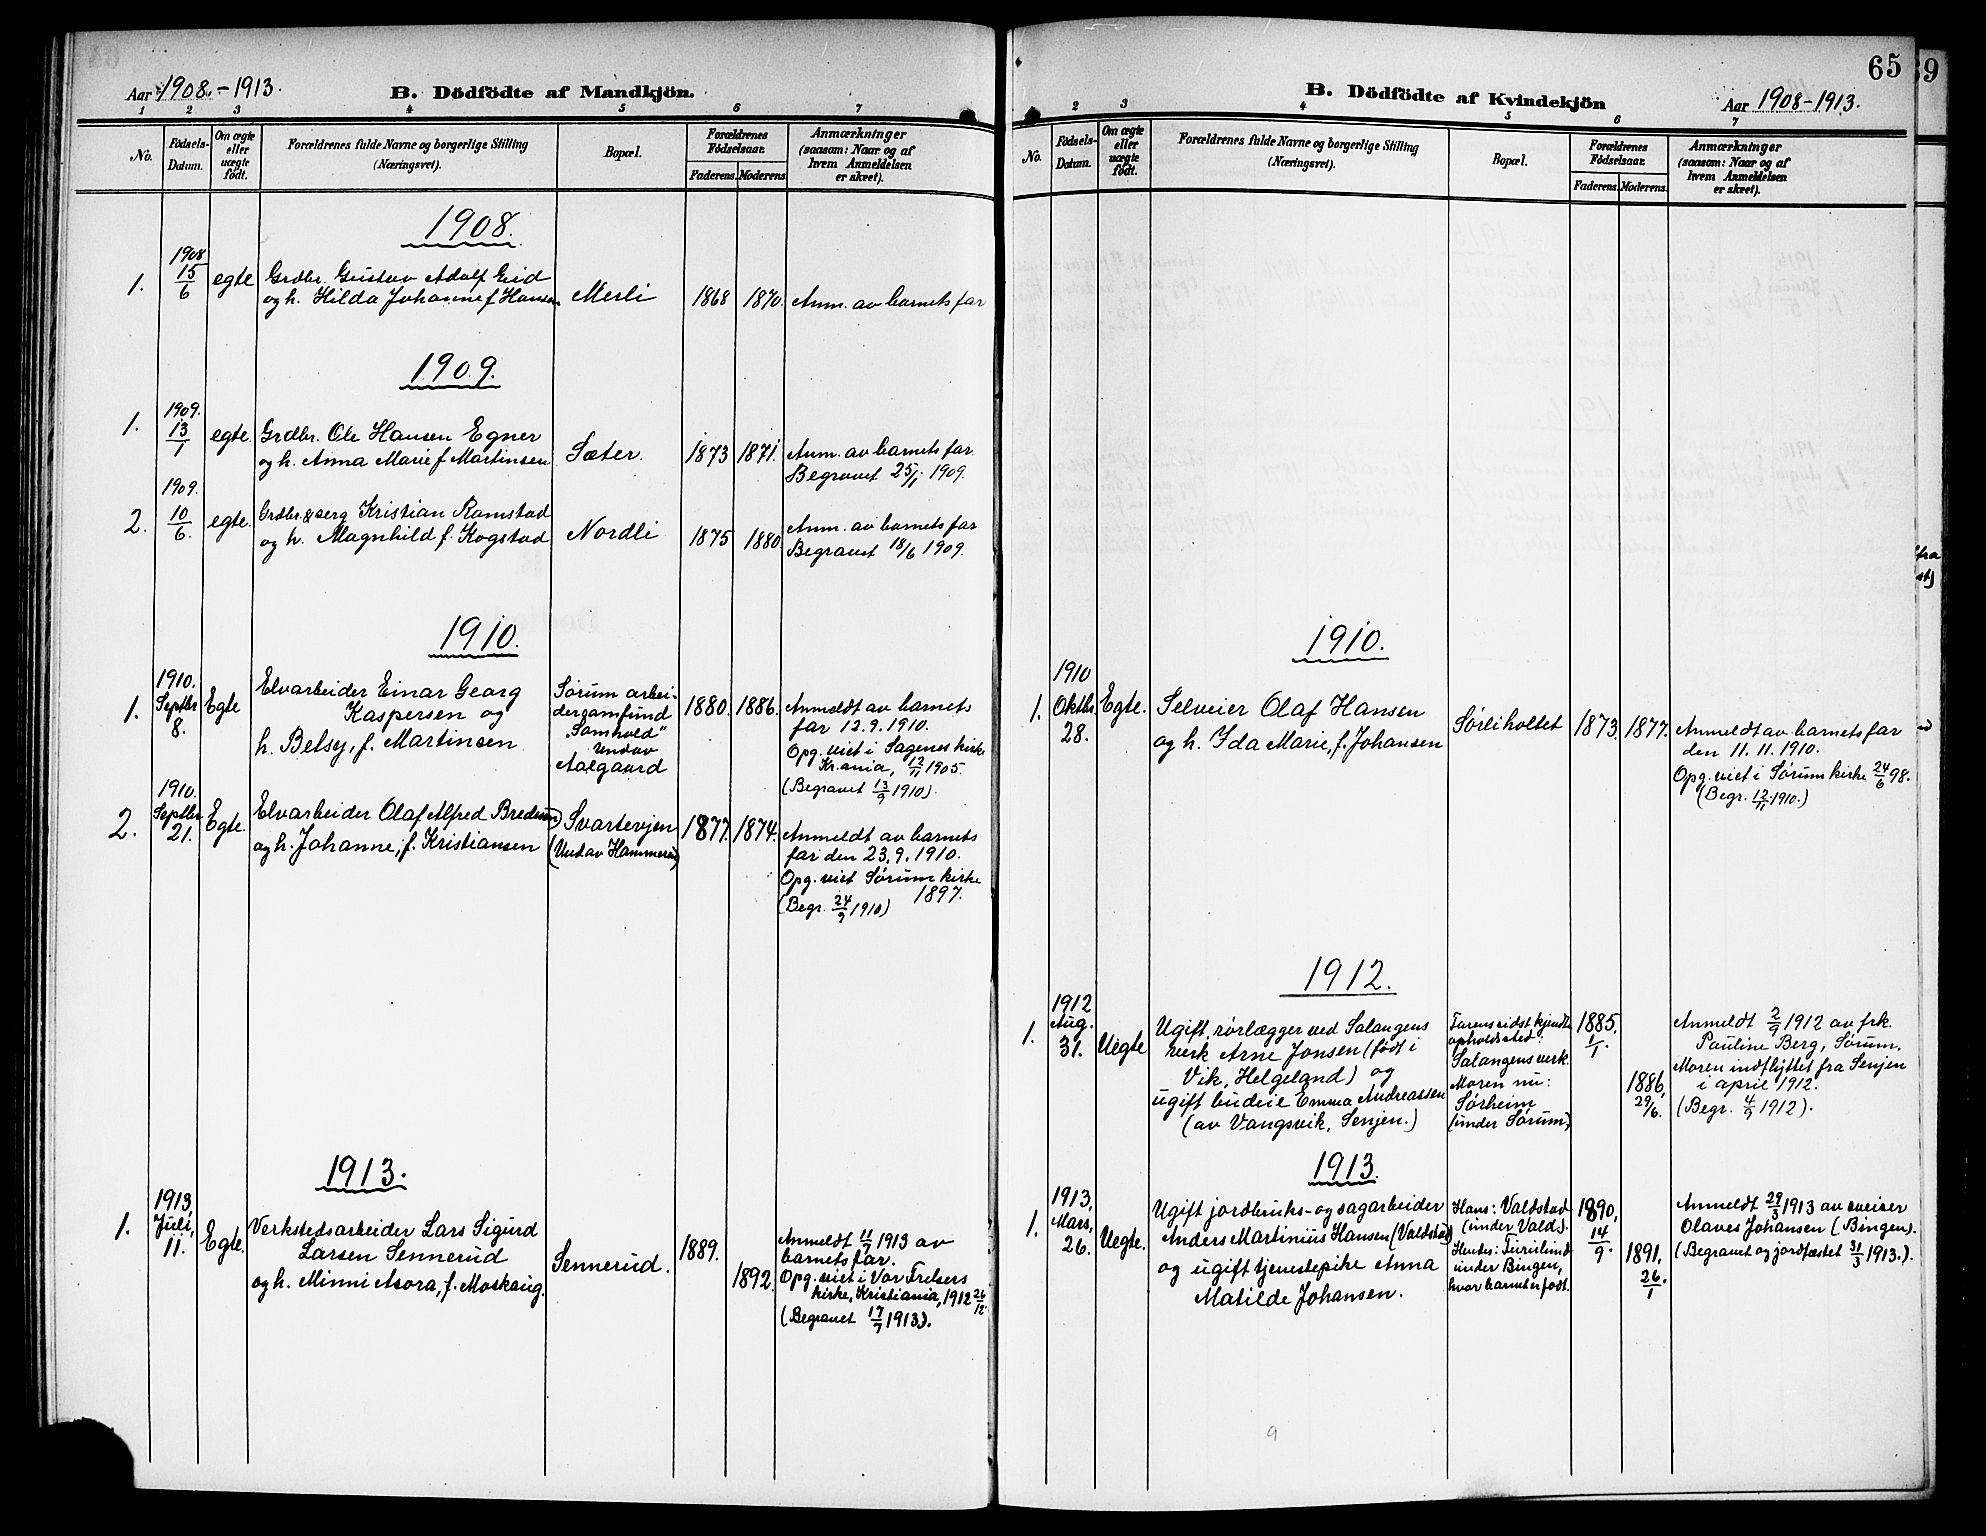 Aar 1908 - 1913.
B. Dödfödte af Mandkjön.
1 2 3 4 5 6 7
No.
Födsels-
Datum.
Om ægte
eller
uægte
födt.
Forældrenes fulde Navne og borgerlige Stilling
(Næringsvei).
Bopæl.
Forældrenes
Födselsaar.
Faderens. Moderens.
Anmærkninger
(saasom: Naar og af
hvem Anmeldelsen
er skeet).
1908.
1.
1908
15/6
egte
Grdbr. Gustav Adolf Eid
og h. Hilda Johanne f. Hansen
Merli
1868
1870.
Anm. av barnets far
1909.
1.
1909.
13/1
egte.
Grdbr. Ole Hansen Egner
og h. Anna Marie f. Martinsen
Sæter.
1873
1871.
Anm. av barnets far.
Begravet 25/1 1909.
2.
1909.
10/6.
egte.
Grdbr. & serg Kristian Ramstad
og h. Magnhild f. Kogstad
Nordli
1875
1880.
Anm. av barnets far
Begravet 18/6 1909.
1910.
1.
1910.
Septbr
8.
Egte
Elvarbeider Einar Georg
Kaspersen og
h. Betsy, f. Martinsen
Sørum arbei-
dersamfund
"Samhold"
Undav
Aalgaard
1880.
1886.
Anmeldt av barnets
far 12.9.1910.
Opg. viet i Sagenes kirke
Kr.ania, 12/11 1905.
(Begravet 13/9 1910).
2.
1910.
Septbr
21.
Egte.
Elvarbeider Olaf Alfred Bredesen
og h. Johanne, f. Kristiansen
Svartevjen
(Undav Hammerud)
1877.
1874.
Anmeldt av barnets
far den 23.9.1910.
Opg. viet Sørum kirke
1897.
(Begr. 24/9 1910)
1913.
1.
1913,
Juli,
11.
Egte.
Verkstedsarbeider Lars Sigurd
Larsen Sennerud
og h. Minni Asora, f. Moskaug.
Sennerud.
1889.
1892.
Anmeldt 11/7 1913 av
barnets far.
Opg. viet i Vor Frelsers
kirke, Kristiania, 1912 26/12.
(Begravet 17/7 1913).
65
B. Dödfödte af Kvindekjön
Aar 1908 - 1913.
2 3 4 5 6 7
No.
Födsels-
Datum.
Om ægte
eller
uægte
födt.
Forældrenes fulde Navne og borgerlige Stilling
(Næringsvei).
Bopæl.
Forældrenes
Födselsaar.
Faderens. Moderens.
Anmærkninger
(saasom: Naar og af
hvem Anmeldelsen
er skeet).
1910.
1.
1910
Oktbr.
28.
Egte.
Selveier Olaf Hansen
og h. Ida Marie, f. Johansen
Sørliholtet
1873.
1877.
Anmeldt av barnets far
den 11.11.1910.
Opg. viet i Sørum kirke 24/6 98.
(Begr. 12/11 1910.)
1912.
1.
1912
Aug.
31.
Uegte
Ugift, rørlægger ved Salangens
verk Arne Jonsen (født i
Vik, Helgeland) og
ugift budeie Emma Andreassen
(av Vangsvik, Senjen.)
Farens sidst kjendte
opholdssted:
Salangens verk.
Moren nu:
Sørheim
(under Sørum)
1885.
1/1.
1886,
29/6.
Anmeldt 2/9 1912 av frk.
Pauline Berg, Sørum.
Moren indflyttet fra Senjen
i april 1912.
(Begr. 4/9 1912).
1913.
1.
1913,
Mars,
26.
Uegte.
Ugift jordbruks- og sagarbeider
Anders Martinius Hansen (Valdstad)
og ugift tjenestepike Anna
Matilde Johansen.
Hans: Valdstad
(under Vald).
Hendes: Furulund
under Bingen,
hvor barnet er født.
1890,
14/9.
1891,
26/1
Anmeldt 29/3 1913 av sveiser
Olaves Johansen (Bingen).
(Begravet og jordfæstet 31/3 1913.).
9